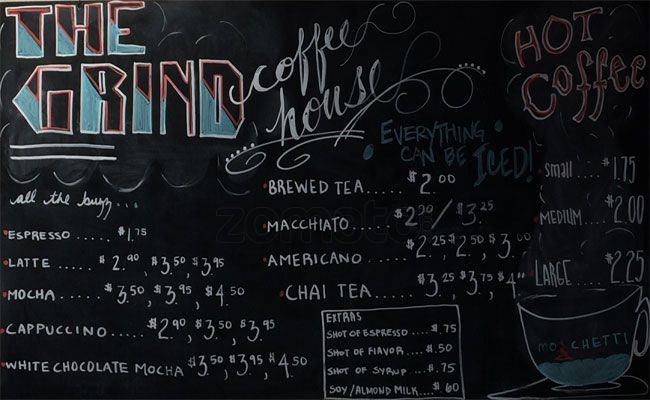 THE
GRIND
coffee
house
EVERYTHING
CAN BE ICED!
all the buzz...
ESPRESSO ..... $1.75
LATTE ..... $2.90, $3.50, $3.95
MOCHA ..... $3.50, $3.95, $4.50
CAPPUCCINO ..... $2.90, $3.50, $3.95
WHITE CHOCOLATE MOCHA $3.50, $3.95, $4.50
BREWED TEA ..... $2.00
MACCHIATO ..... $2.90 / $3.25
AMERICANO ..... $2.25, $2.50, $3.00
CHAI TEA ..... $3.25, $3.75, $4
EXTRAS
SHOT OF ESPRESSO .... $.75
SHOT OF FLAVOR .... $.50
SHOT OF SYRUP .... $.75
SOY/ALMOND MILK .... $.60
HOT
Coffee
Small ... $1.75
MEDIUM ... $2.00
LARGE ... $2.25
CHETTI
zomato